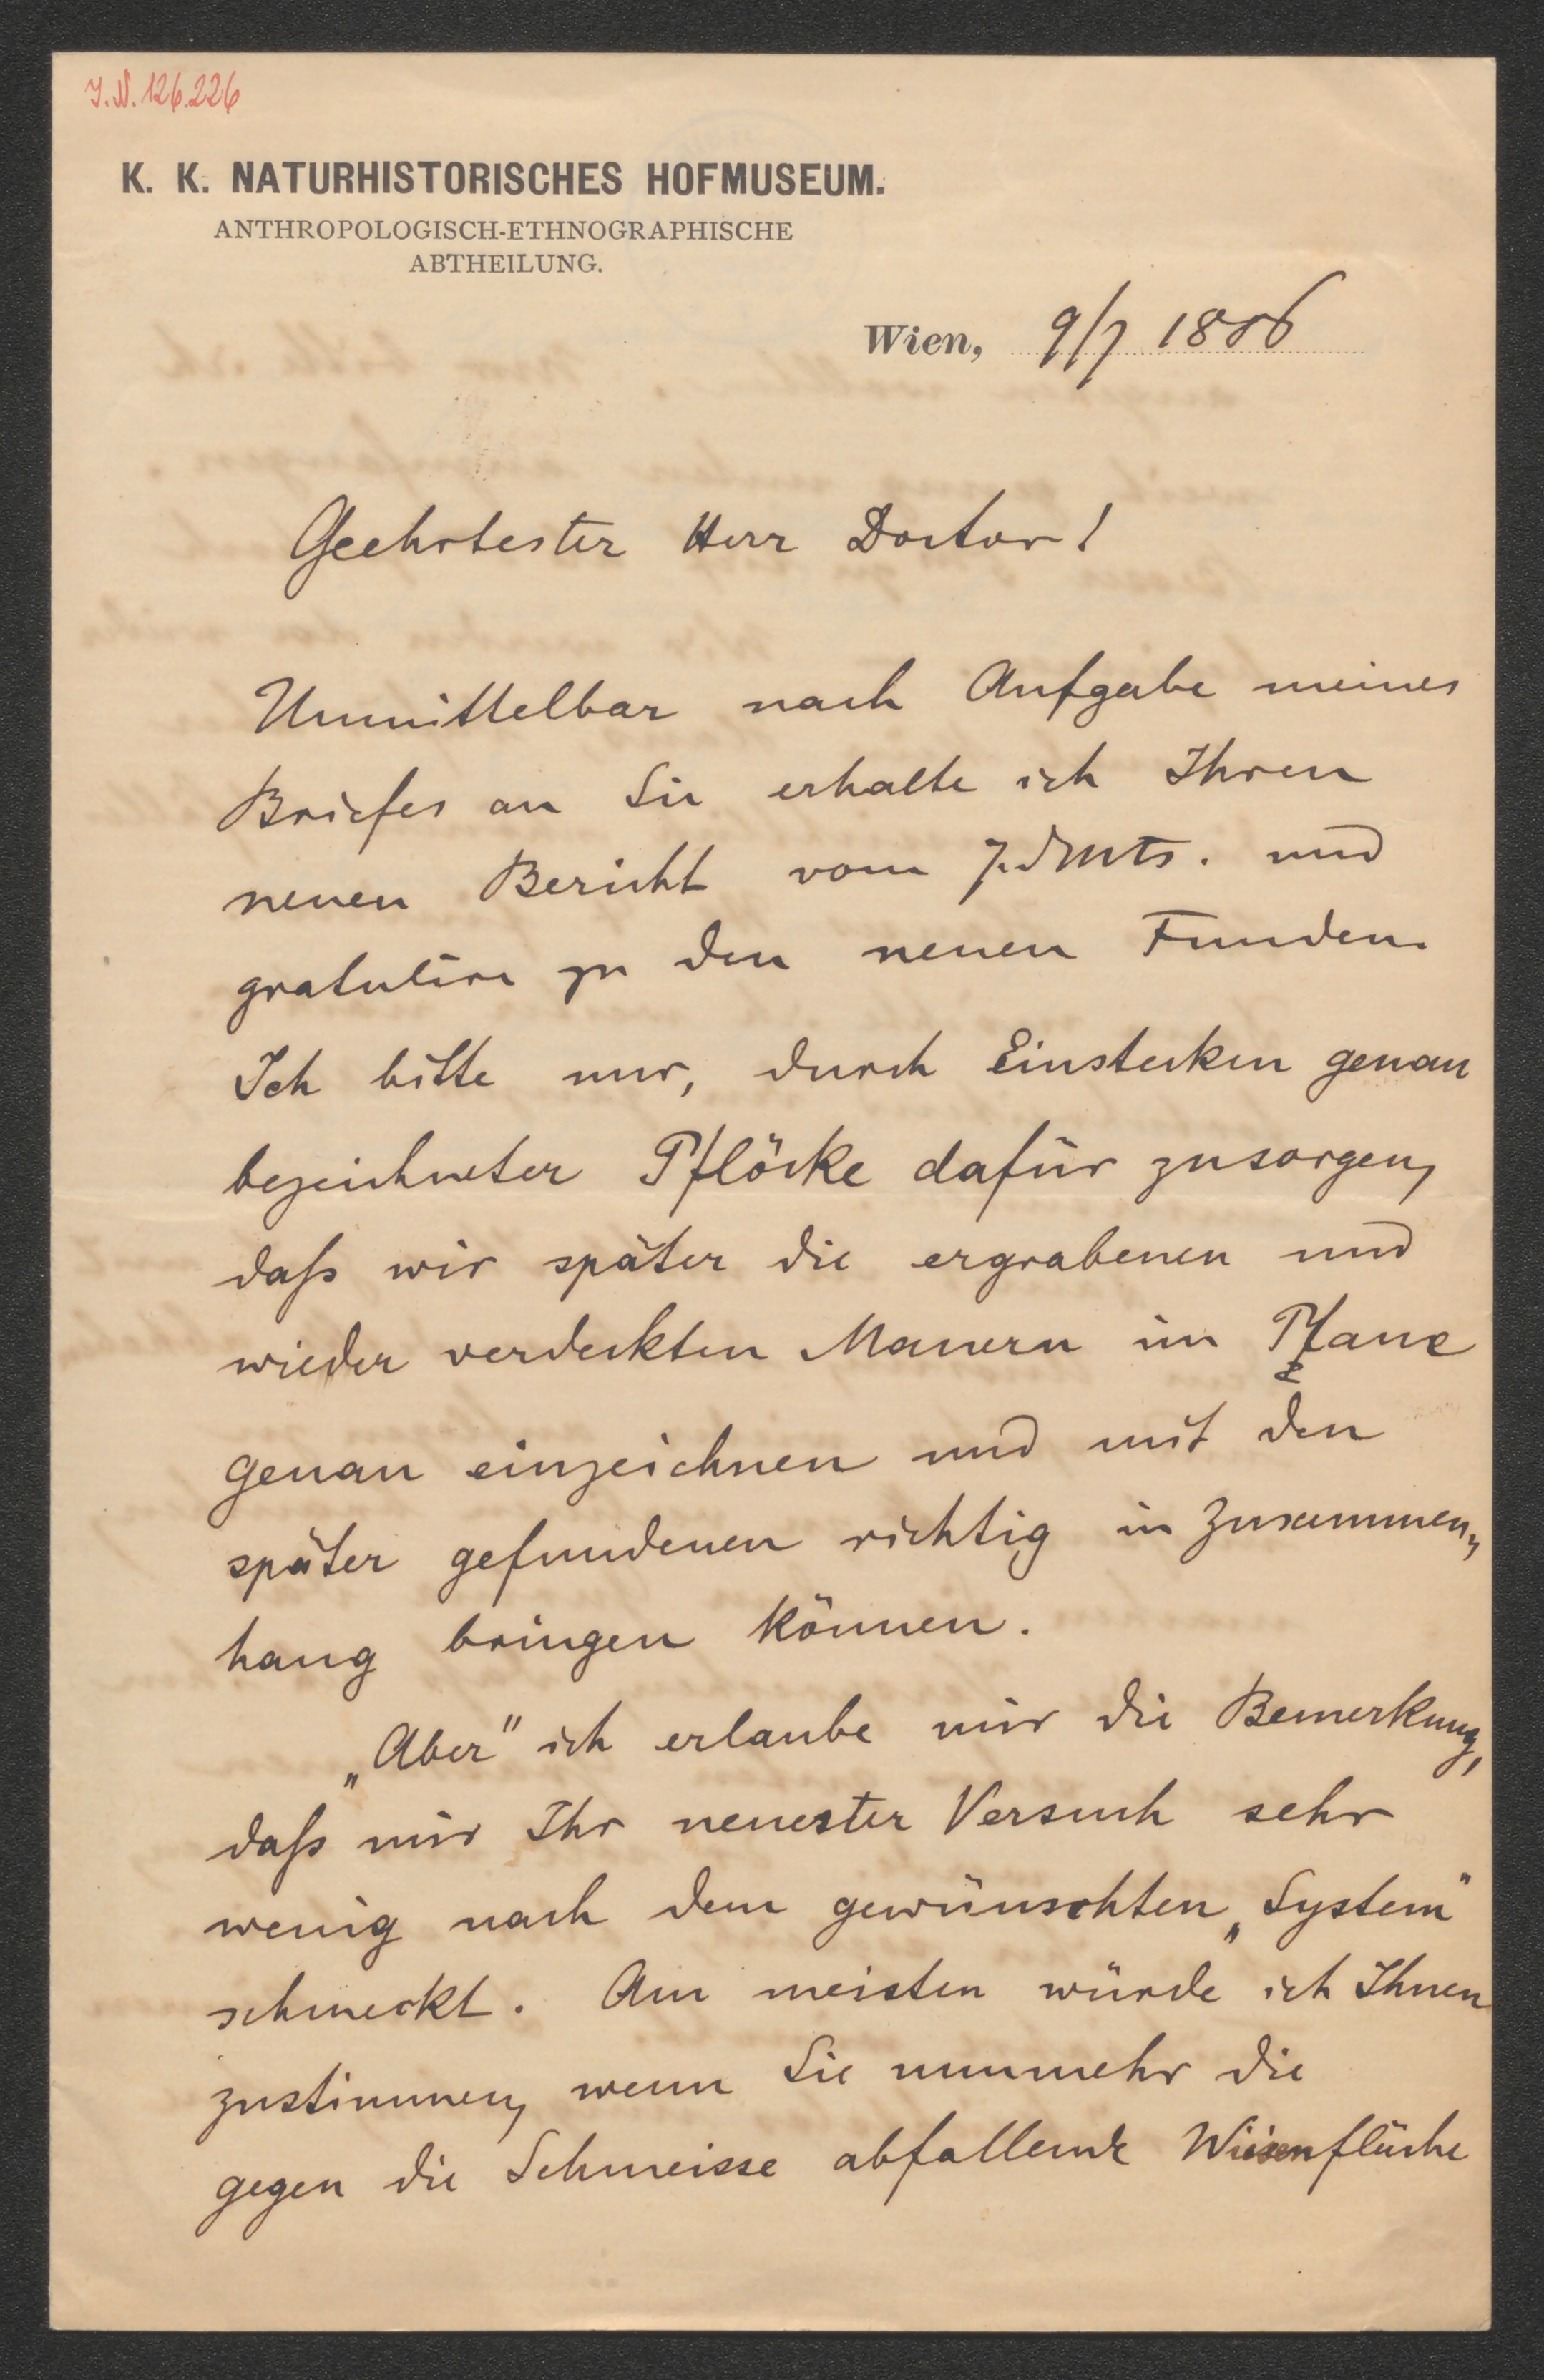 I.N. 126.226
K. K. NATURHISTORISCHES HOFMUSEUM.
ANTHROPOLOGISCH-ETHNOGRAPHISCHE
ABTHEILUNG.
Wien, 9/7 1886
Geehrtester Herr Doctor!
Unmittelbar nach Aufgabe meines
Briefes an Sie erhalte ich Ihren
neuen Bericht vom 7. d Mts. und
gratulire zu den neuen Funden.
Ich bitte nur, durch Einstecken genau
bezeichneter Pflöcke dafür zu sorgen,
daß wir später die ergrabenen und
wieder verdeckten Mauern im Plane
genau einzeichnen und mit den
später gefundenen richtig in Zusammen„
hang bringen können.
„Aber" ich erlaube mir die Bemerkung,
daß mir Ihr neuester Versuch sehr
wenig nach dem gewünschten „System"
schmeckt. Am meisten würde ich Ihnen
zustimmen, wenn Sie nunmehr die
gegen die Schmeisse abfallende Wiesenfläche